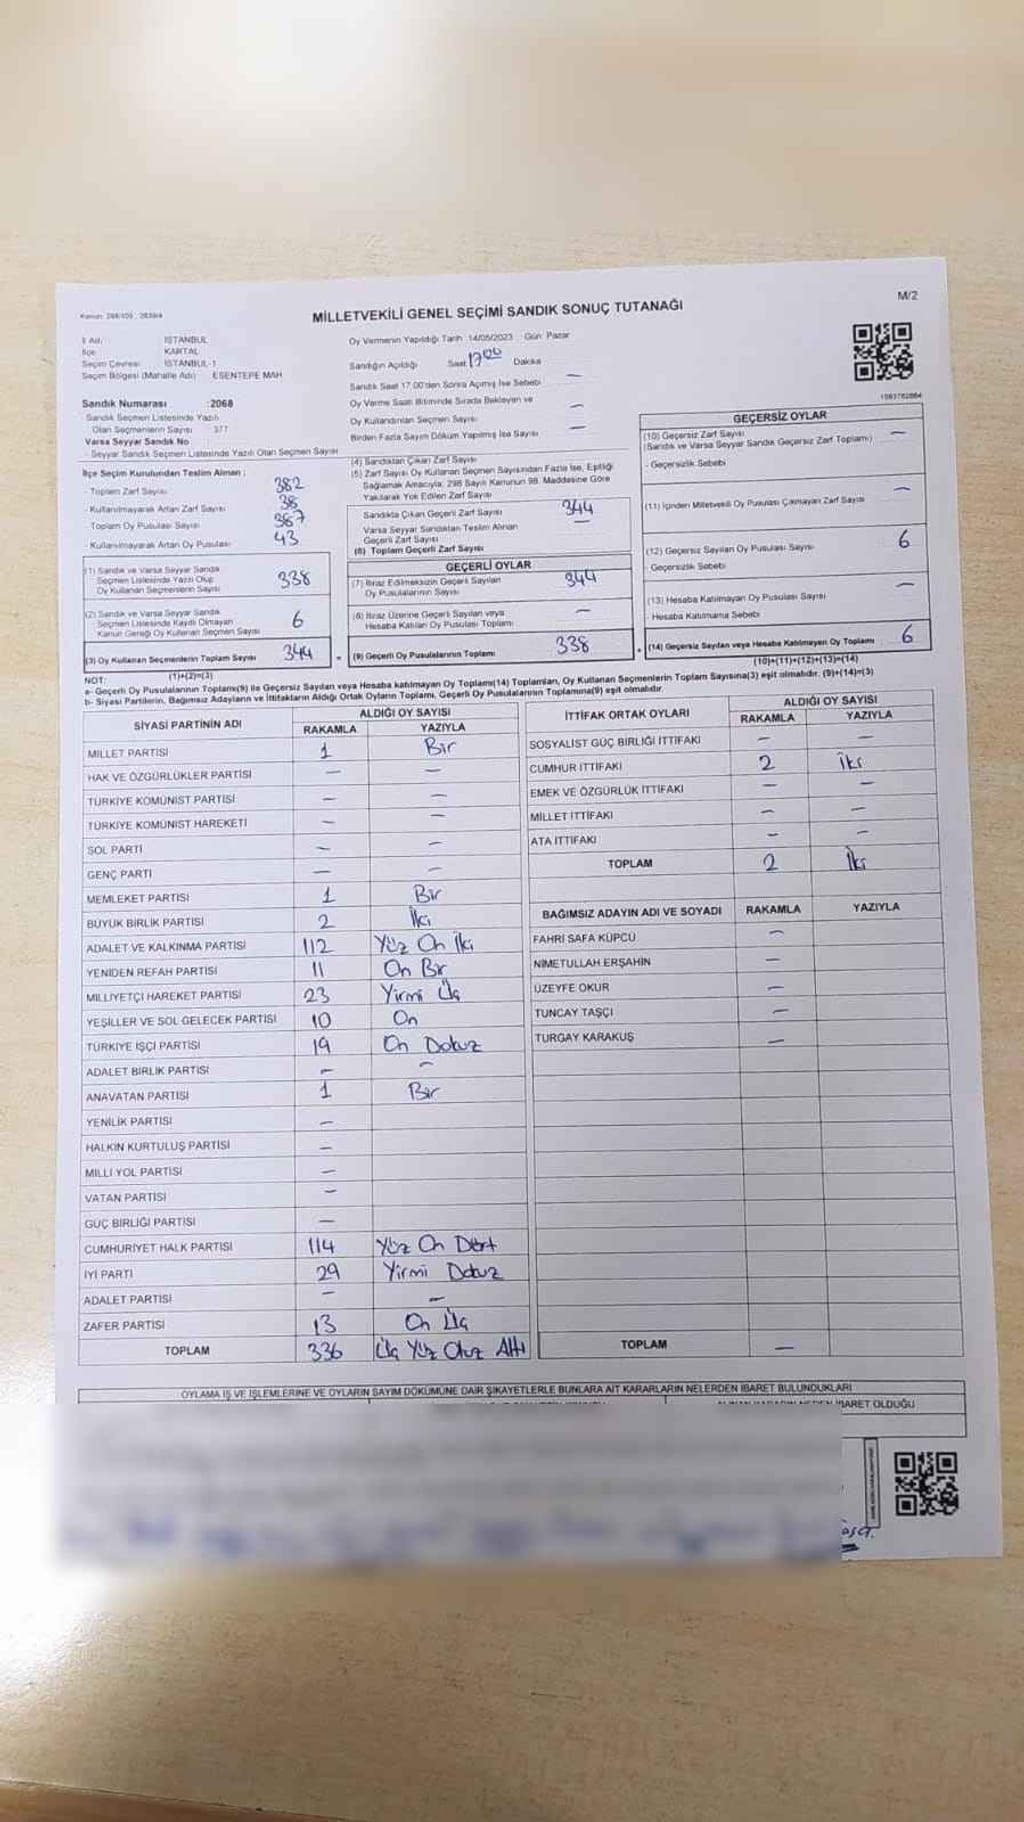 MİLLETVEKİLİ GENEL SEÇİMİ SANDIK SONUÇ TUTANAĞI
M/2
İl Adı: İSTANBUL
İlçe: KARTAL
Seçim Çevresi İSTANBUL-1
Seçim Bölgesi (Mahalle Adı) ESENTEPE MAH
Sandık Numarası :2068
Sandık Seçmen Listesinde Yazılı
Olan Seçmenlerin Sayısı 377
Varsa Seyyar Sandık No
- Seyyar Sandık Seçmen Listesinde Yazılı Olan Seçmen Sayısı
Oy Vermenin Yapıldığı Tarih 14/05/2023 Gün: Pazar
Sandığın Açıldığı Saat 17.00 Dakika
Sandık Saat 17.00'den Sonra Açımış İse Sebebi —
Oy Verme Saati Bitiminde Sırada Bekleyen ve
Oy Kullandırılan Seçmen Sayısı —
Birden Fazla Sayım Döküm Yapılmış İse Sayısı —
İlçe Seçim Kurulundan Teslim Alınan :
- Toplam Zarf Sayısı 382
- Kullanılmayarak Artan Zarf Sayısı 38
- Toplam Oy Pusulası Sayısı 387
- Kullanılmayarak Artan Oy Pusulası 43
(1) Sandık ve Varsa Seyyar Sandık
Seçmen Listesinde Yazılı Olup
Oy Kullanan Seçmenlerin Sayısı 338
(2) Sandık ve Varsa Seyyar Sandık
Seçmen Listesinde Kayıtlı Olmayan
Kanun Gereği Oy Kullanan Seçmen Sayısı 6
(3) Oy Kullanan Seçmenlerin Toplam Sayısı 344
(1)+(2)=(3)
(4) Sandıktan Çıkan Zarf Sayısı
(5) Zarf Sayısı Oy Kullanan Seçmen Sayısından Fazla İse, Eşitliği
Sağlamak Amacıyla, 298 Sayılı Kanunun 98. Maddesine Göre
Yakılarak Yok Edilen Zarf Sayısı
Sandıkta Çıkan Geçerli Zarf Sayısı 344
Varsa Seyyar Sandıktan Teslim Alınan
Geçerli Zarf Sayısı —
(6) Toplam Geçerli Zarf Sayısı
GEÇERLİ OYLAR
(7) İtiraz Edilmeksizin Geçerli Sayılan
Oy Pusulalarının Sayısı 344
(8) İtiraz Üzerine Geçerli Sayılan veya
Hesaba Katılan Oy Pusulası Toplamı —
(9) Geçerli Oy Pusulalarının Toplamı 338
GEÇERSİZ OYLAR
(10) Geçersiz Zarf Sayısı —
(Sandık ve Varsa Seyyar Sandık Geçersiz Zarf Toplamı)
- Geçersizlik Sebebi
(11) İçinden Milletvekili Oy Pusulası Çıkmayan Zarf Sayısı —
(12) Geçersiz Sayılan Oy Pusulası Sayısı 6
Geçersizlik Sebebi
(13) Hesaba Katılmayan Oy Pusulası Sayısı —
Hesaba Katılmama Sebebi
(14) Geçersiz Sayılan veya Hesaba Katılmayan Oy Toplamı 6
(10)+(11)+(12)+(13)=(14)
NOT:
a- Geçerli Oy Pusulalarının Toplamı(9) ile Geçersiz Sayılan veya Hesaba katılmayan Oy Toplamı(14) Toplamları, Oy Kullanan Seçmenlerin Toplam Sayısına(3) eşit olmalıdır. (9)+(14)=(3)
b- Siyasi Partilerin, Bağımsız Adayların ve İttifakların Aldığı Ortak Oyların Toplamı, Geçerli Oy Pusulalarının Toplamına(9) eşit olmalıdır.
SİYASİ PARTİNİN ADI ALDIĞI OY SAYISI
RAKAMLA YAZIYLA
MİLLET PARTİSİ 1 Bir
HAK VE ÖZGÜRLÜKLER PARTİSİ — —
TÜRKİYE KOMÜNİST PARTİSİ — —
TÜRKİYE KOMÜNİST HAREKETİ — —
SOL PARTİ — —
GENÇ PARTİ — —
MEMLEKET PARTİSİ 1 Bir
BÜYÜK BİRLİK PARTİSİ 2 İki
ADALET VE KALKINMA PARTİSİ 112 Yüz On İki
YENİDEN REFAH PARTİSİ 11 On Bir
MİLLİYETÇİ HAREKET PARTİSİ 23 Yirmi Üç
YEŞİLLER VE SOL GELECEK PARTİSİ 10 On
TÜRKİYE İŞÇİ PARTİSİ 19 On Dokuz
ADALET BİRLİK PARTİSİ — —
ANAVATAN PARTİSİ 1 Bir
YENİLİK PARTİSİ —
HALKIN KURTULUŞ PARTİSİ —
MİLLİ YOL PARTİSİ —
VATAN PARTİSİ —
GÜÇ BİRLİĞİ PARTİSİ —
CUMHURİYET HALK PARTİSİ 114 Yüz On Dört
İYİ PARTİ 29 Yirmi Dokuz
ADALET PARTİSİ — —
ZAFER PARTİSİ 13 On Üç
TOPLAM 336 Üç Yüz Otuz Altı
İTTİFAK ORTAK OYLARI ALDIĞI OY SAYISI
RAKAMLA YAZIYLA
SOSYALİST GÜÇ BİRLİĞİ İTTİFAKI — —
CUMHUR İTTİFAKI 2 İki
EMEK VE ÖZGÜRLÜK İTTİFAKI — —
MİLLET İTTİFAKI — —
ATA İTTİFAKI — —
TOPLAM 2 İki
BAĞIMSIZ ADAYIN ADI VE SOYADI RAKAMLA YAZIYLA
FAHRİ SAFA KÜPCÜ —
NİMETULLAH ERŞAHİN —
ÜZEYFE OKUR —
TUNCAY TAŞÇI —
TURGAY KARAKUŞ —
TOPLAM —
OYLAMA İŞ VE İŞLEMLERİNE VE OYLARIN SAYIM DÖKÜMÜNE DAİR ŞİKAYETLERLE BUNLARA AİT KARARLARIN NELERDEN İBARET BULUNDUKLARI
İBARET OLDUĞU